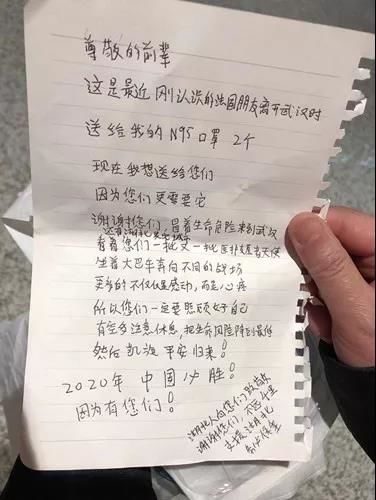 尊敬的前辈
这是最近刚认识的法国朋友离开武汉时
送给我的N95口罩 2个
现在我想送给您们
因为您们更需要它
谢谢您们,冒着生命危险来到武汉
看着您们一批又一批医非逆天使
坐着大巴车奔向不同的战场
更多的不仅仅是感动,而是心疼
所以您们一定要照顾好自己
有空多注意休息,把生命风险降到最低
然后凯旋 平安归来!
2020年 中国必胜!
因为有您们!
湖北人向您们致敬
谢谢您们,不远千里
支援湖北